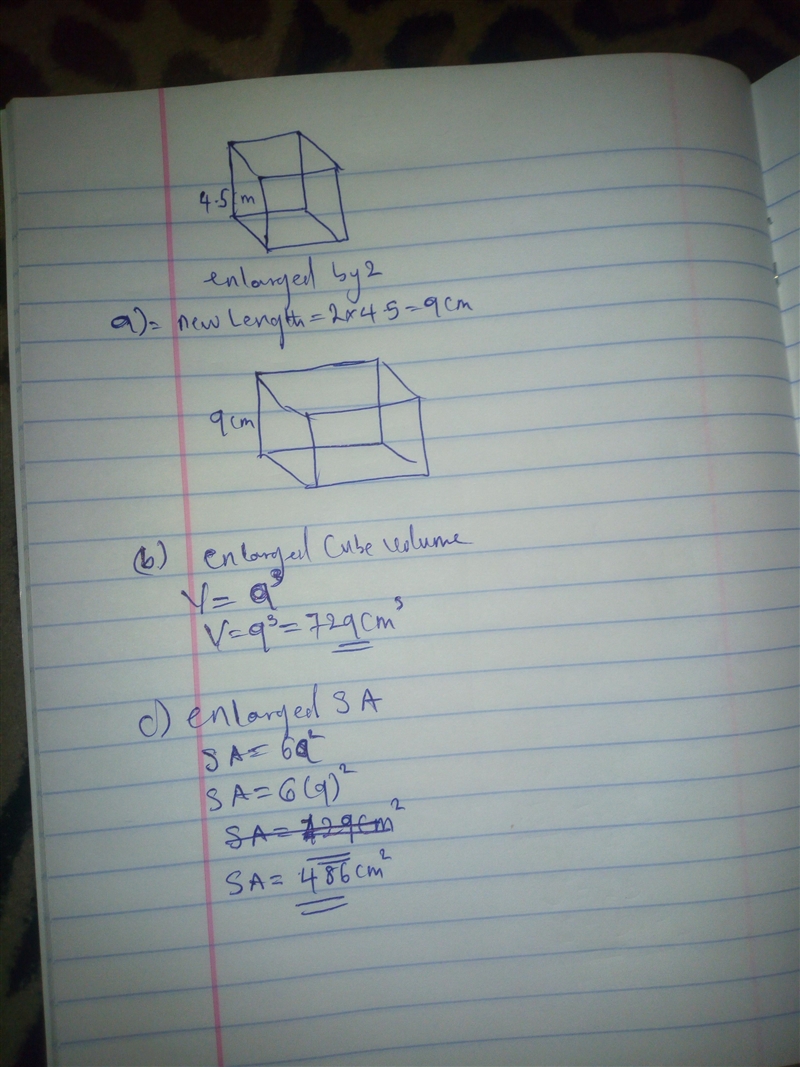 4.5 m
enlarged by 2
a) = new Length = 2×4.5 = 9cm
9cm
(b) enlarged Cube volume
V = a³
V = 9³ = 729cm³
c) enlarged SA
SA = 6a²
SA = 6(9)²
SA = 729cm²
SA = 486cm²